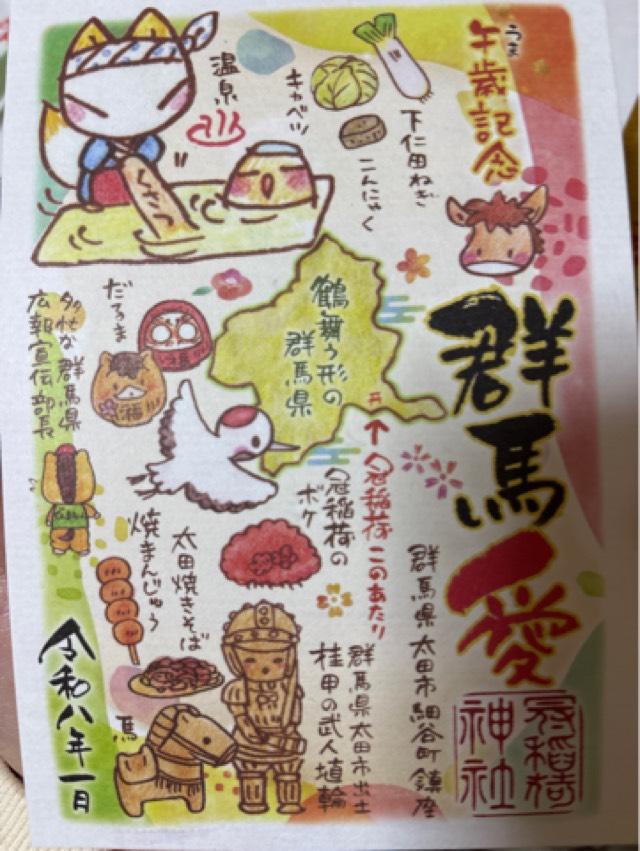 うま
午歳記念
群馬愛
群馬県太田市細谷町鎮座
冠稲荷
神社
下仁田ねぎ
キャベツ
こんにゃく
温泉
くさつ
鶴舞う形の
群馬県
↑冠稲荷このあたり
冠稲荷の
ボケ
だるま
福
多忙な群馬県
広報宣伝部長
太田焼きそば
焼まんじゅう
群馬県太田市出土
挂甲の武人埴輪
馬
令和八年一月